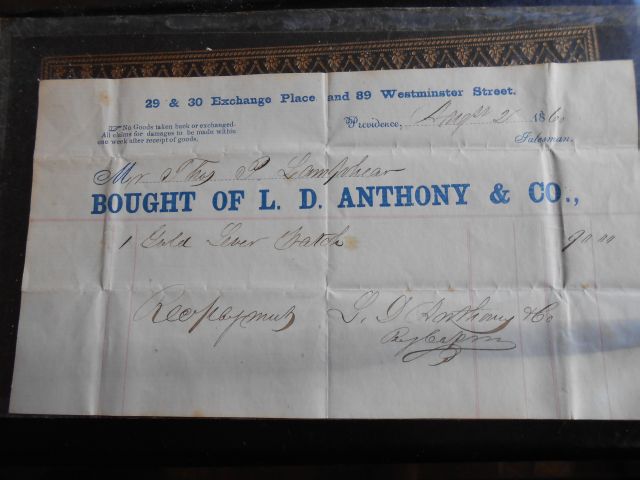 29 & 30 Exchange Place and 89 Westminster Street.
☞ No Goods taken back or exchanged.
All claims for damages to be made within
one week after receipt of goods.
Providence, Sept 21 1860
Salesman.
Mr Thos P. Lamphear
BOUGHT OF L. D. ANTHONY & CO.,
1 Gold Lever Watch 90.00
Rec Payment L. D. Anthony & Co